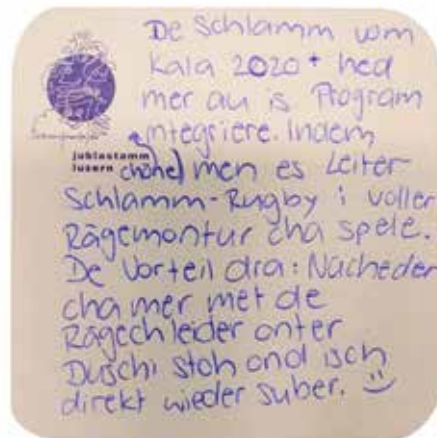 De Schlamm vom
Kala 2020+ hed
mer au is Program
integriere. Indem
jublastamm
luzern
(chöne) men es Leiter-
Schlamm-Rugby i voller
Rägemontur cha spele.
De Vorteil dra: Nacheder
cha mer met de
Rägechleder onter
Duschi stoh ond isch
direkt wieder suber. :)